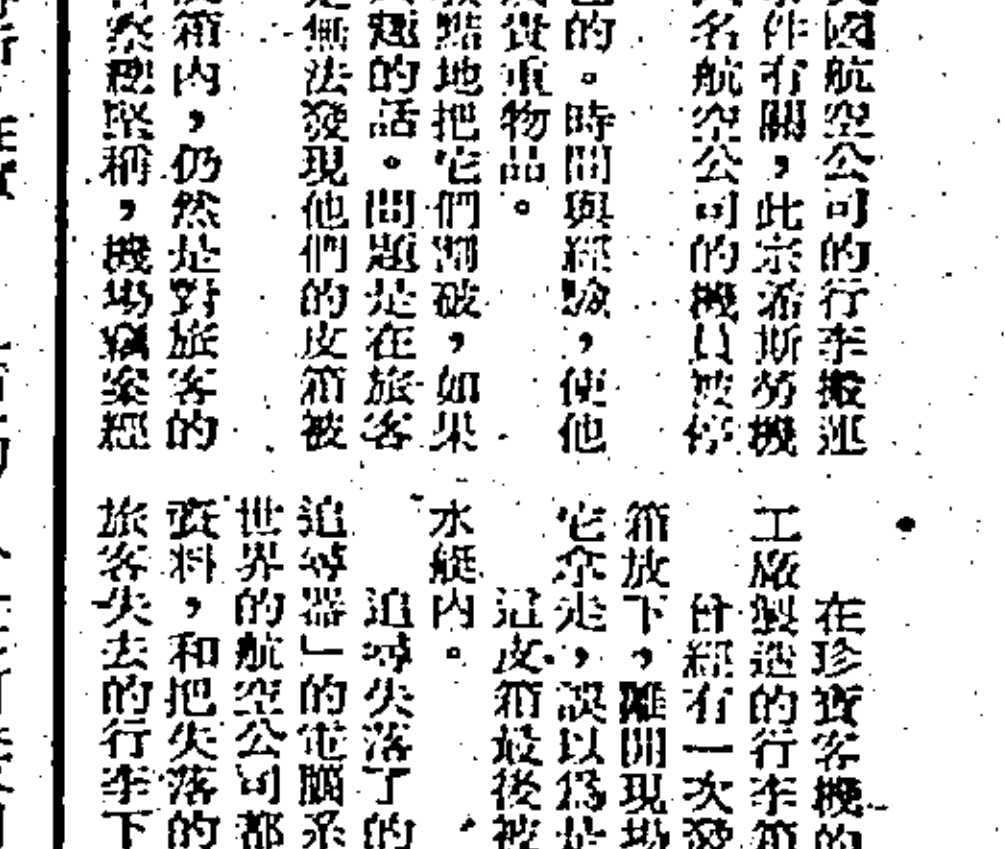 國航空公司的行李搬運
件有關，此宗希斯勞機
名航空公司的機員被停
的。時間與經驗，使他
貴重物品。
點地把它們割破，如果
題的話。問題是在旅客
無法發現他們的皮箱被
箱內，仍然是對旅客的
察總堅稱，機場竊案經
在珍寶客機的
工廠製造的行李箱
曾經有一次發
箱放下，離開現場
它拿走，誤以為是
這皮箱最後被
水艇內。
追尋失落了的
追尋器」的電腦系
世界的航空公司都
資料，和把失落的
旅客失去的行李下